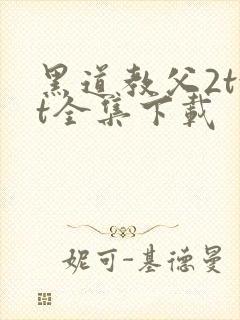 黑道教父2t
t全集下载
妮可-基德曼